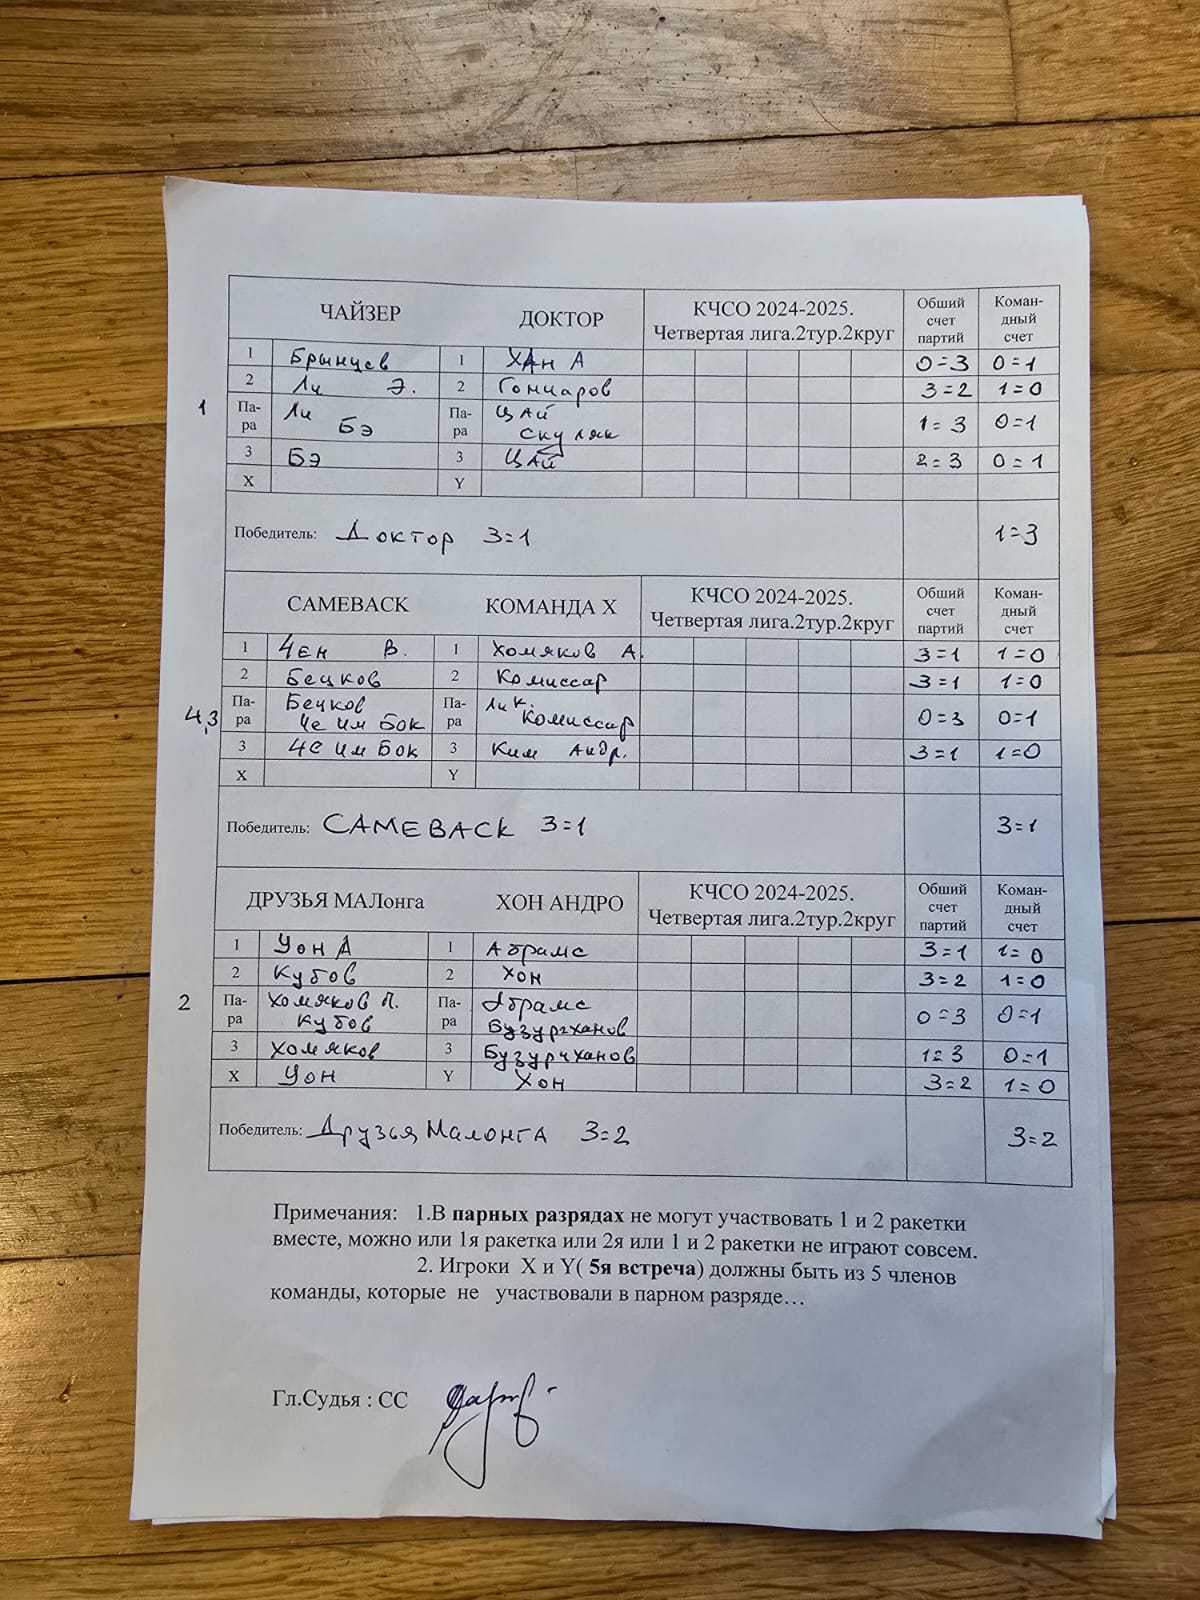 ЧАЙЗЕР ДОКТОР КЧСО 2024-2025. Четвертая лига.2тур.2круг Обший счет партий Коман-дный счет
1 Брынцев 1 ХАН А 0=3 0=1
2 Ли Э. 2 Гончаров 3=2 1=0
1 Па-ра Ли Бэ Па-ра ЦАЙ Скуляк 1=3 0=1
3 Бэ 3 ЦАЙ 2=3 0=1
X Y
Победитель: Доктор 3=1 1=3
CAMEBACK КОМАНДА X КЧСО 2024-2025. Четвертая лига.2тур.2круг Обший счет партий Коман-дный счет
1 Чен В. 1 Хомяков А. 3=1 1=0
2 Бецков 2 Комиссар 3=1 1=0
4,3 Па-ра Бечков Че Им Бок Па-ра Комиссар 0=3 0=1
3 Че Им Бок 3 Ким Андр. 3=1 1=0
X Y
Победитель: CAMEBACK 3=1 3=1
ДРУЗЬЯ МАЛонга ХОН АНДРО КЧСО 2024-2025. Четвертая лига.2тур.2круг Обший счет партий Коман-дный счет
1 Уон А 1 Абрамс 3=1 1=0
2 Кубов 2 Хон 3=2 1=0
2 Па-ра Хомяков П. Кубов Па-ра Абрамс Бузургханов 0=3 0=1
3 Хомяков 3 Бузурчханов 1=3 0=1
X Уон Y Хон 3=2 1=0
Победитель: Друзья Малонга 3=2 3=2
Примечания: 1.В парных разрядах не могут участвовать 1 и 2 ракетки
вместе, можно или 1я ракетка или 2я или 1 и 2 ракетки не играют совсем.
2. Игроки X и Y( 5я встреча) должны быть из 5 членов
команды, которые не участвовали в парном разряде…
Гл.Судья : СС